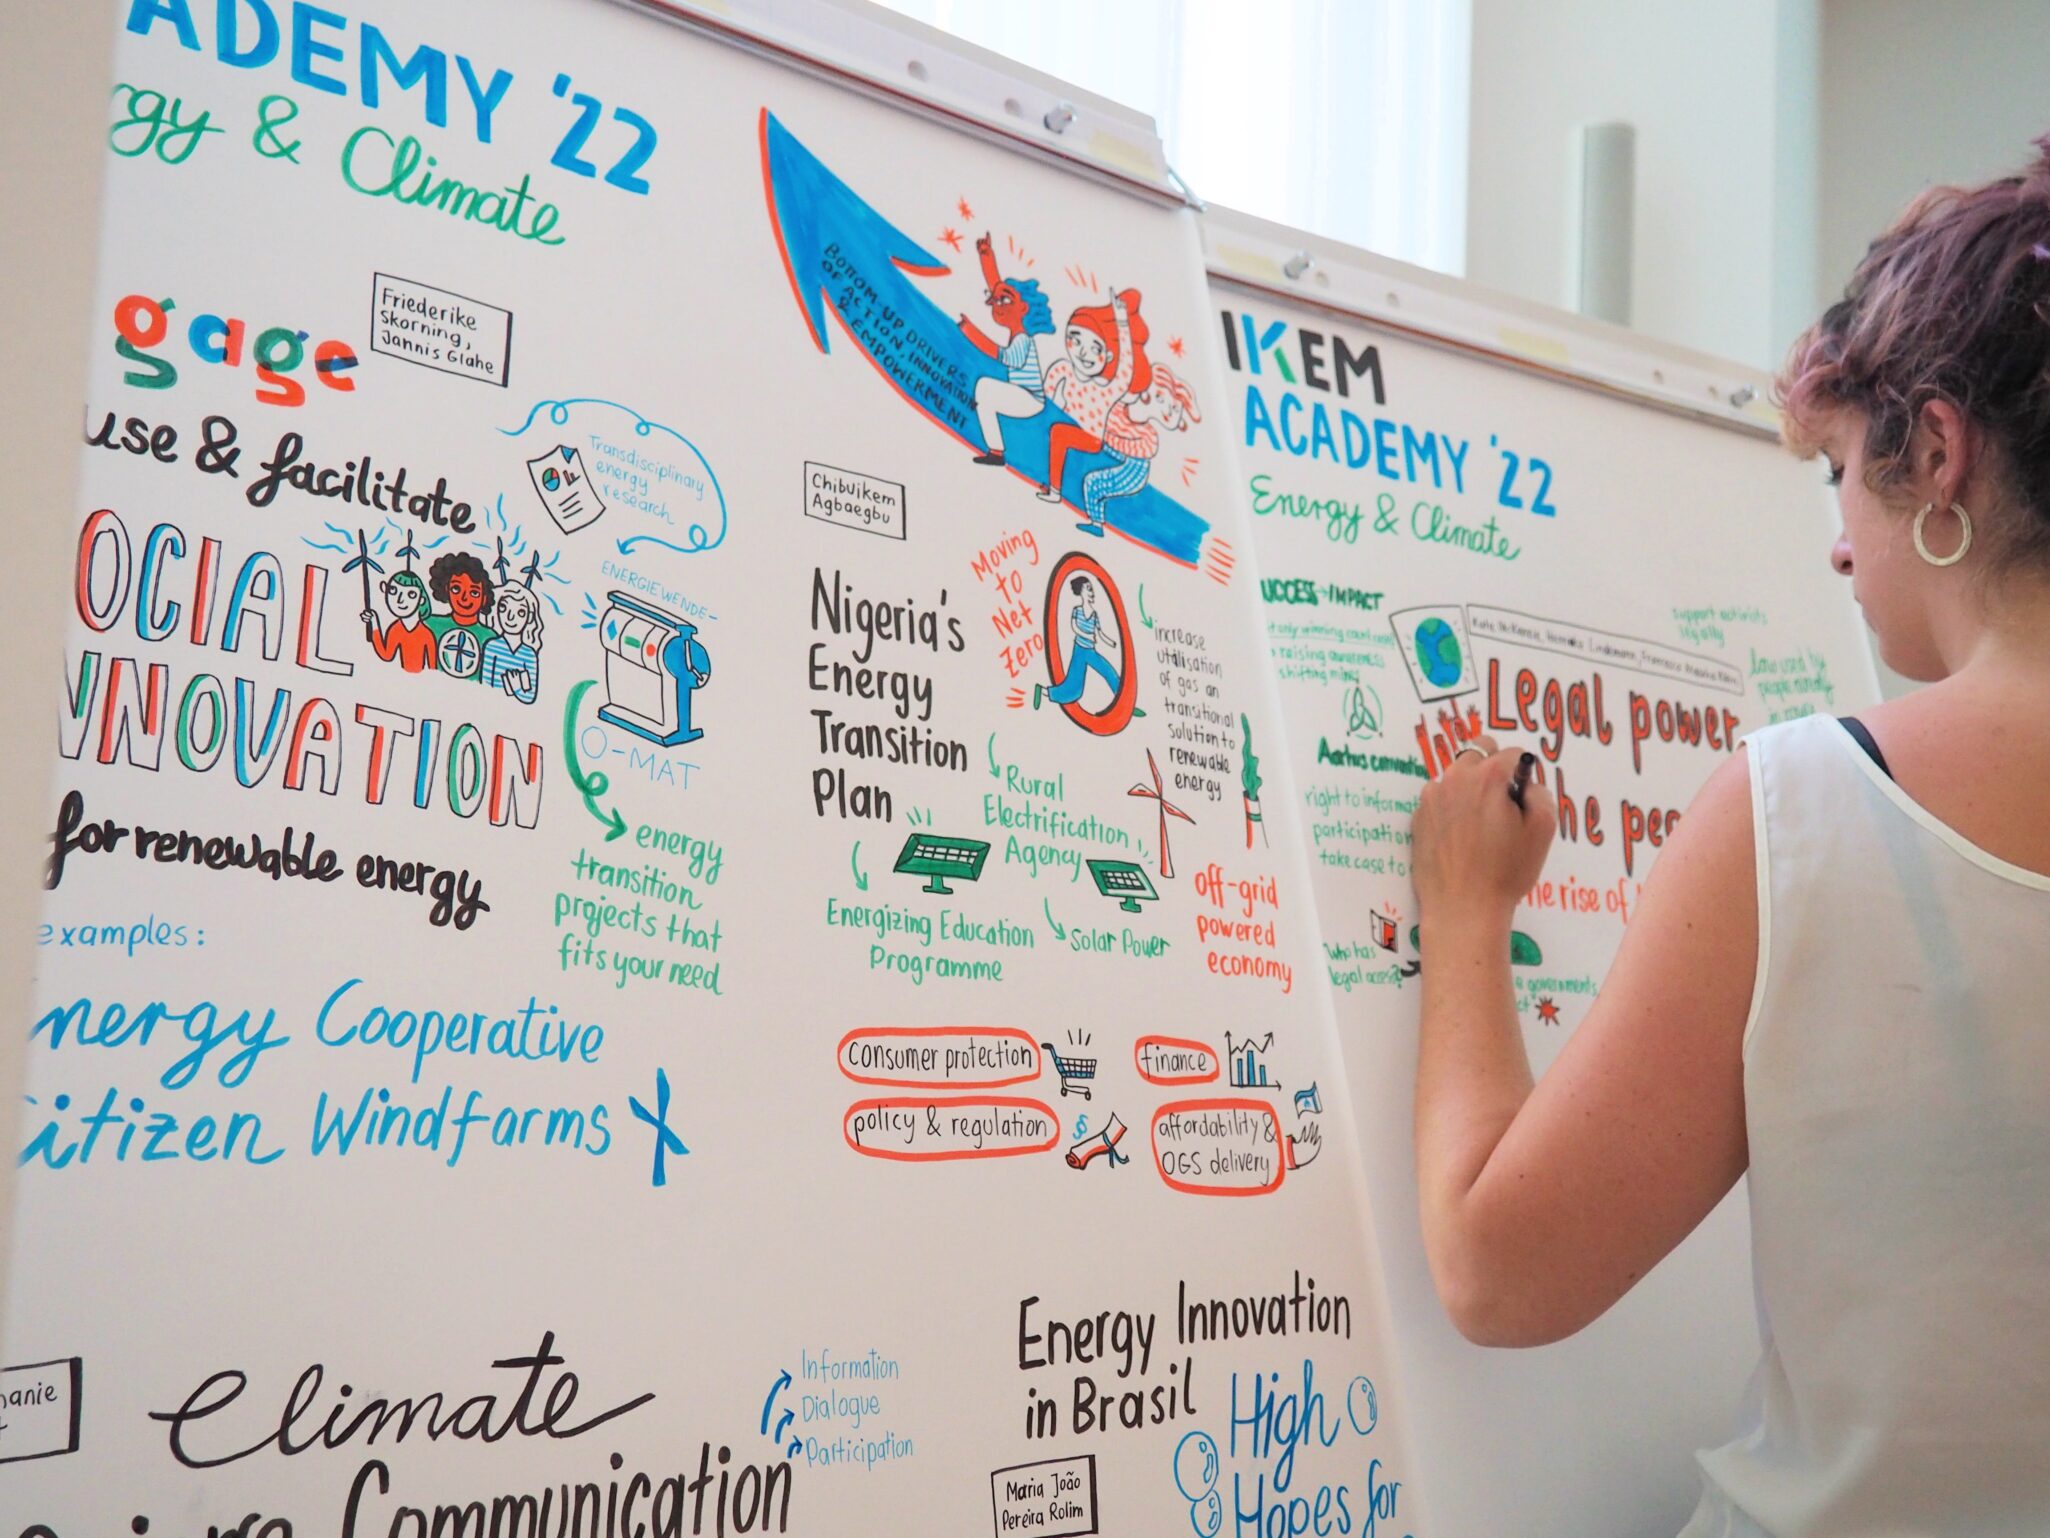 ADEMY '22
& Climate
gage
Friederike
Skorning,
Jannis Glahe
use & facilitate
OCIAL
NNOVATION
for renewable energy
Transdisciplinary
energy
research
ENERGIEWENDE-
O-MAT
energy
transition
projects that
fits your need
examples:
nergy Cooperative
itizen Windfarms
BOTTOM-UP DRIVERS
OF ACTION, INNOVATION
& EMPOWERMENT
Chibuikem
Agbaegbu
Nigeria's
Energy
Transition
Plan
Moving
to
Net
Zero
increase
utilisation
of gas an
transitional
solution to
renewable
energy
Rural
Electrification
Agency
Energizing Education
Programme
Solar Power
Off-grid
powered
economy
consumer protection
finance
policy & regulation
§
affordability &
OGS delivery
Climate
Communication
Information
Dialogue
Participation
Energy Innovation
in Brasil
Maria João
Pereira Rolim
High
Hopes for
IKEM
ACADEMY '22
Energy & Climate
UCCESS→IMPACT
raising awareness
support activists
legally
law used by
Legal power
the peo
Aarhus convention
right to informat
participation
take case to
he rise of
who has
legal access?
governments